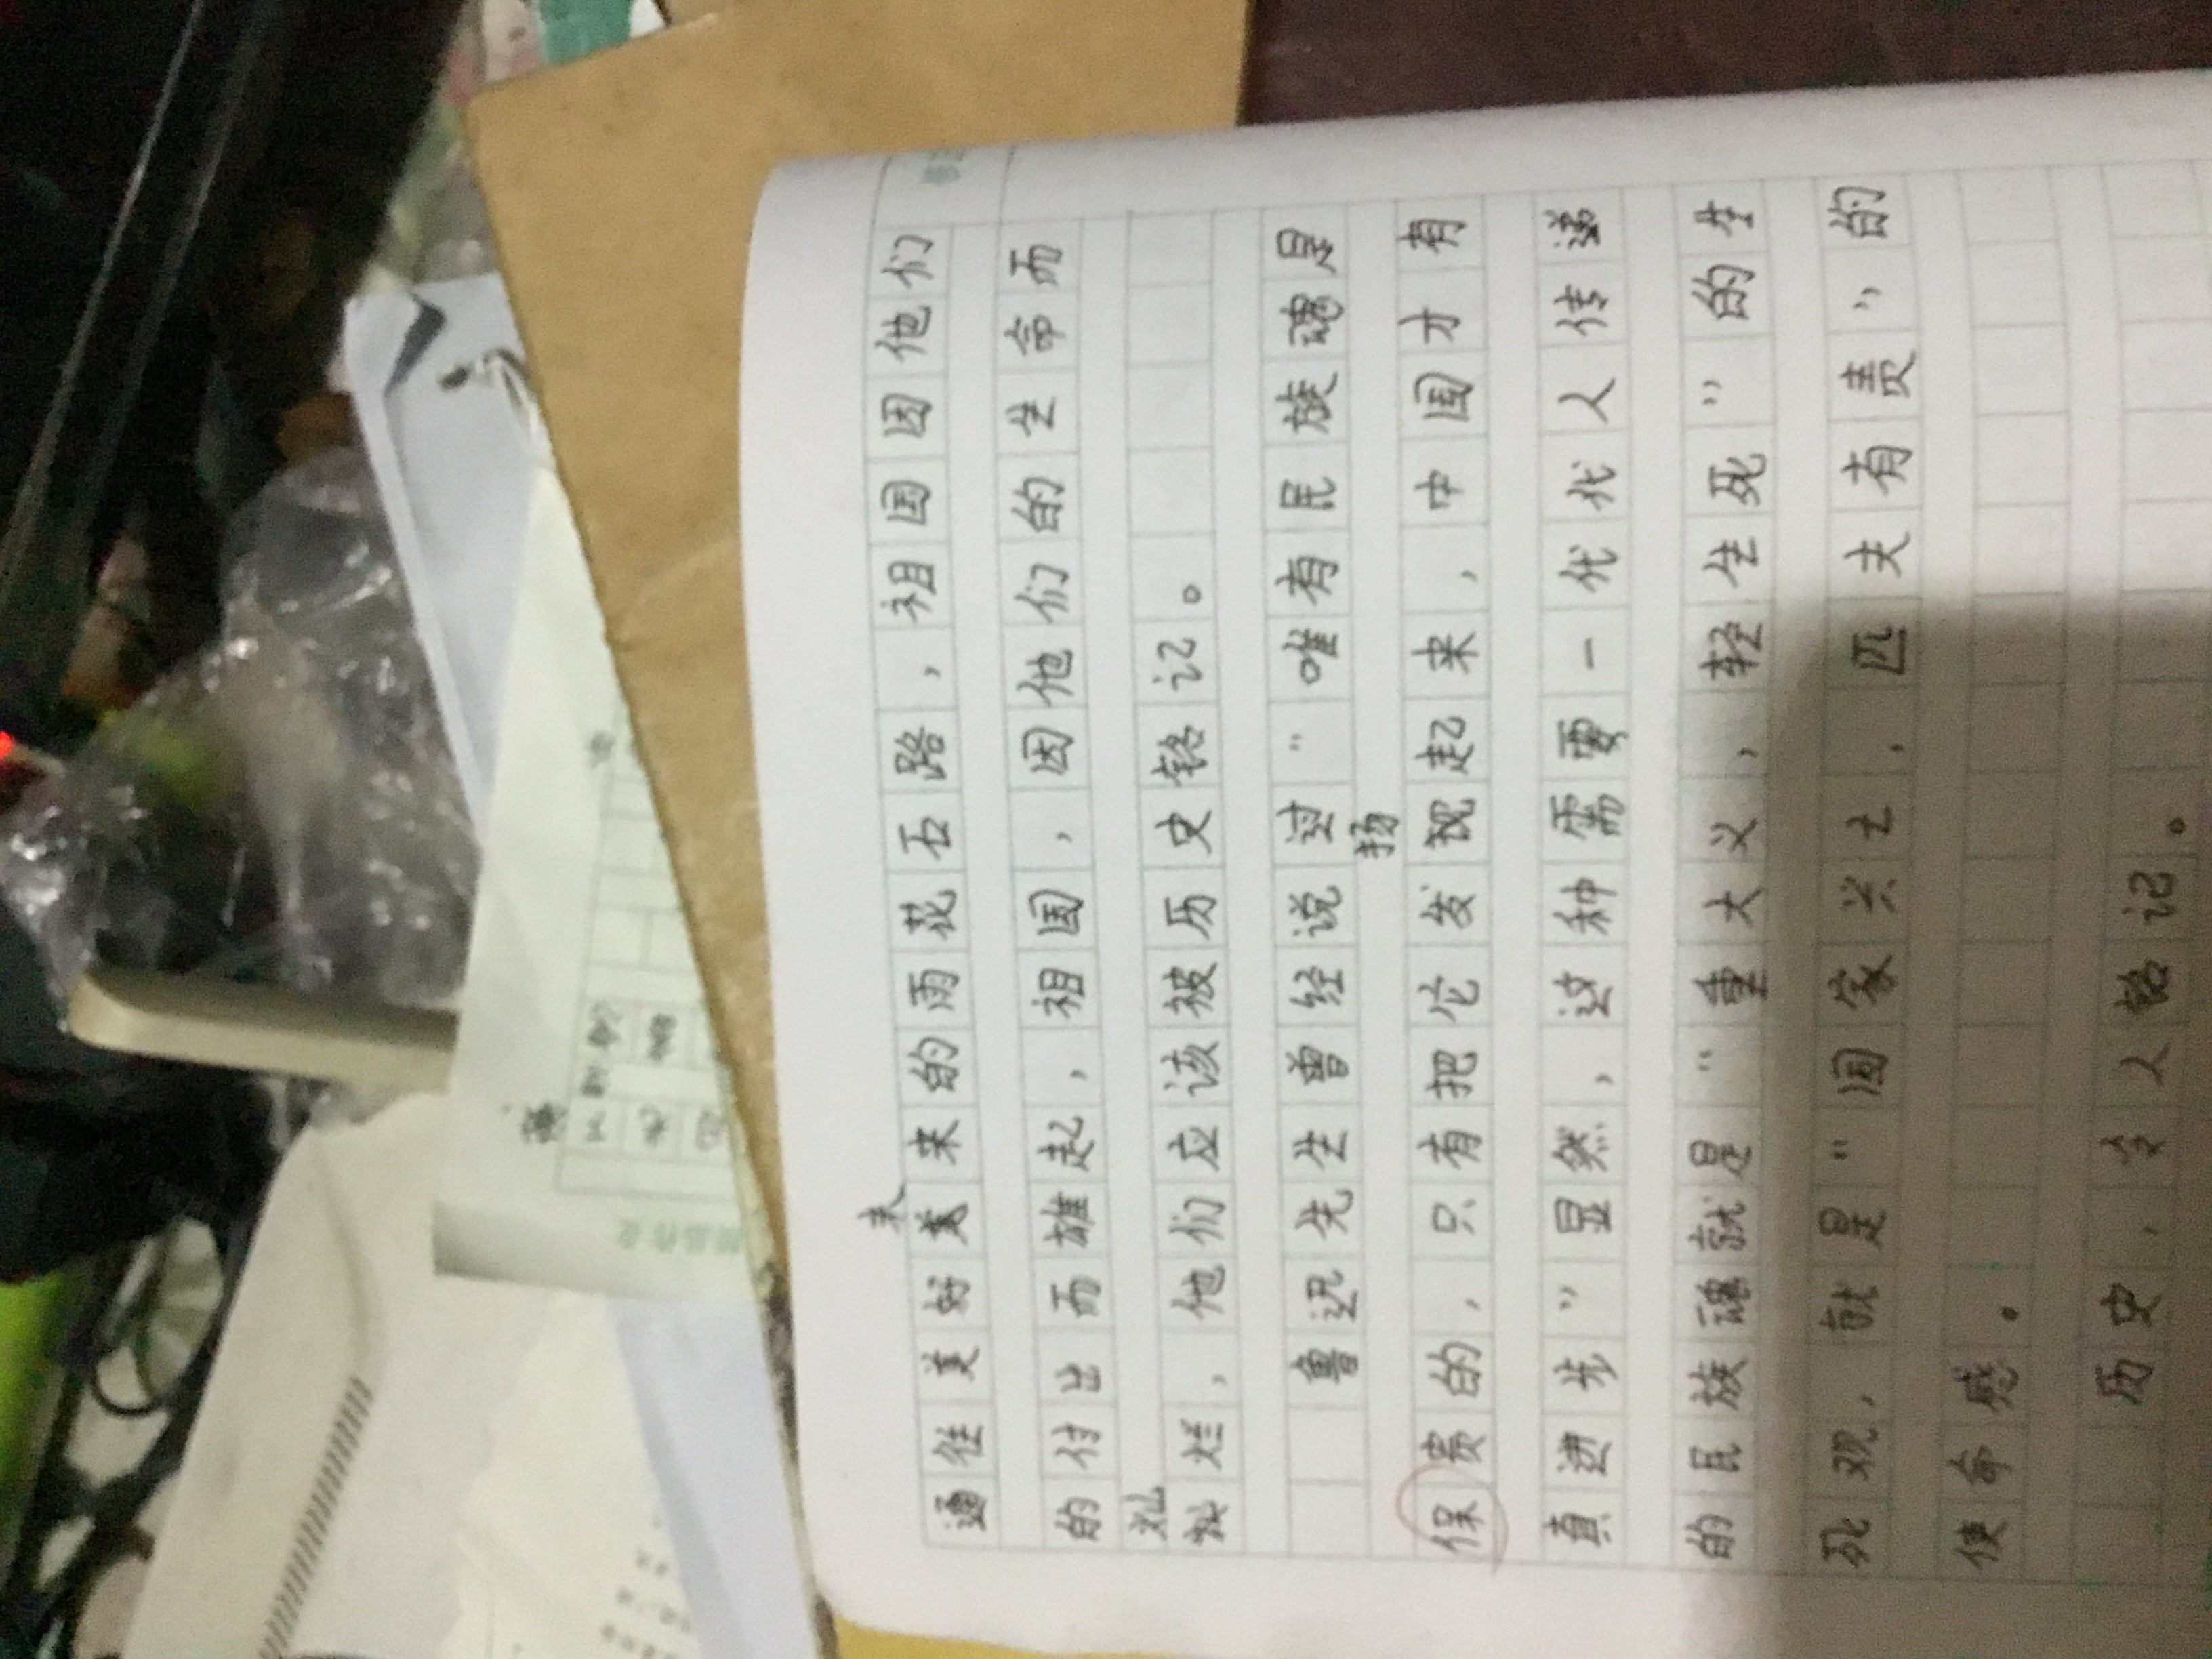 通往美好未来的雨花石路，祖国因他们
的付出而雄起，祖国，因他们的生命而
灿烂，他们应该被历史铭记。
鲁迅先生曾经说过“唯有民族魂是
保贵的，只有把它发扬起来，中国才有
真进步”显然，这种需要一代代人传递
的民族魂就是“重大义，轻生死”的生
死观，就是“国家兴亡，匹夫有责”的
使命感。
历史，令人铭记。